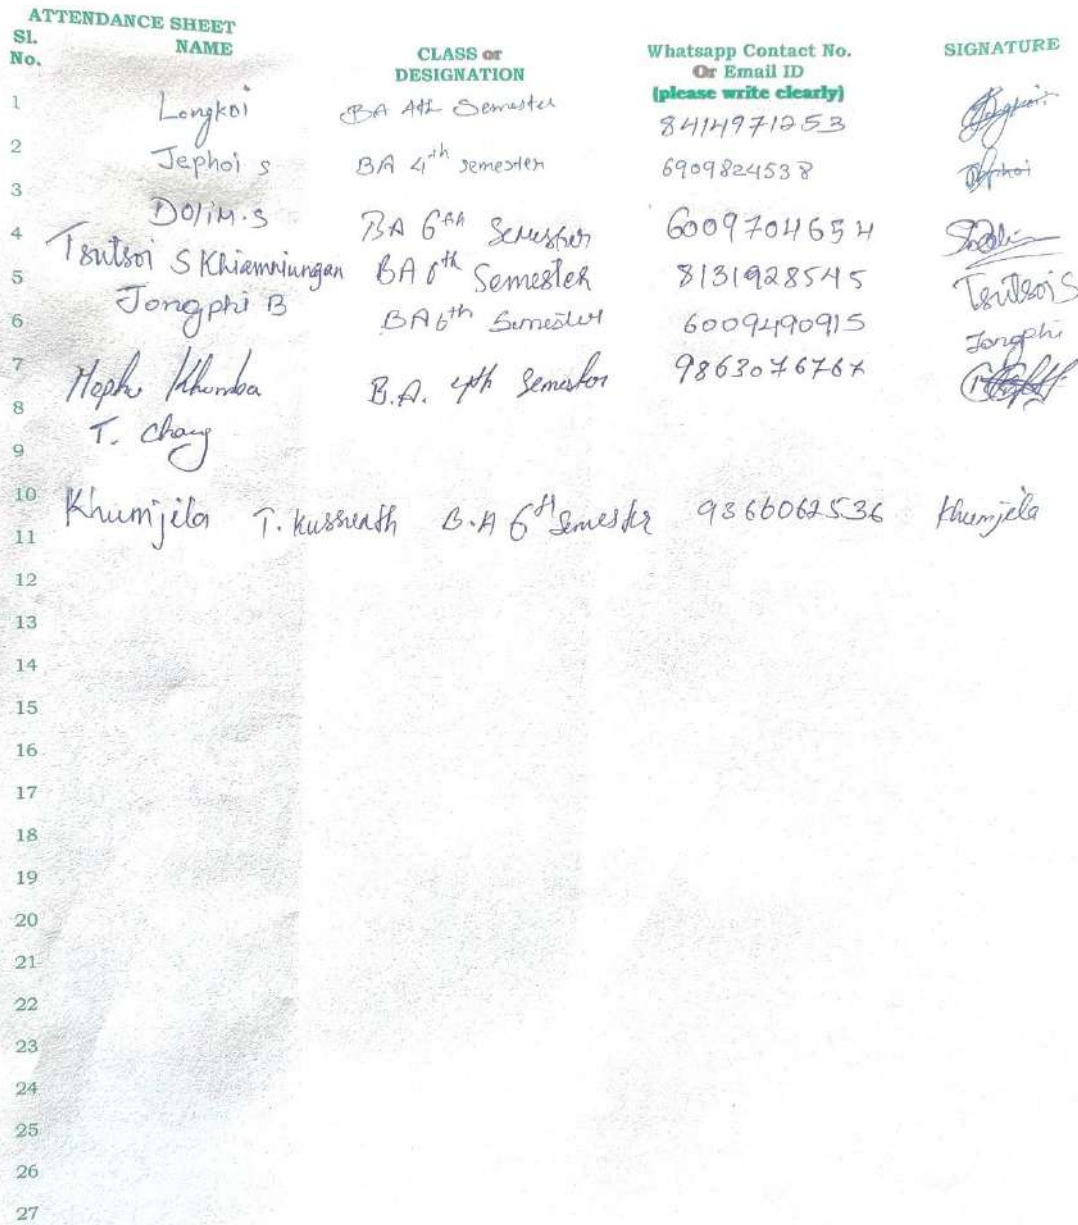 ATTENDANCE SHEET
Sl. No. NAME CLASS or DESIGNATION Whatsapp Contact No. Or Email ID (please write clearly) SIGNATURE
1 Longkoi BA 4th Semester 8414971253
2 Jephoi S BA 4th semester 6909824538 Jephoi
3
4 Dolim.S BA 6th Semester 6009704654
5 Tsutsoi S Khiamniungan BA 6th Semester 8131928545 Tsutsoi S
6 Jongphi B BA 6th Semester 6009490915 Jongphi
7 Khumba B.A. 4th Semester 9863076767
8 T. Chang
9
10 Khumjela T. B.A 6th Semester 9366062536 Khumjela
11
12
13
14
15
16
17
18
19
20
21
22
23
24
25
26
27